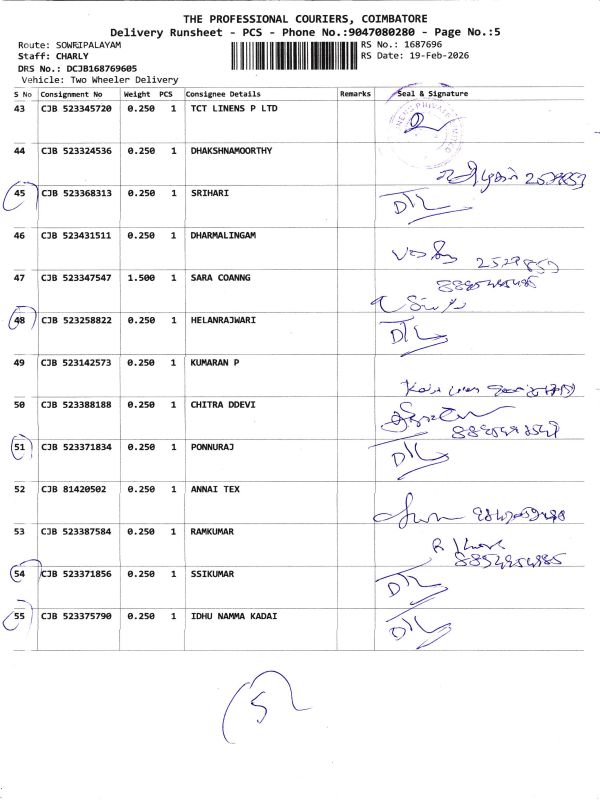 THE PROFESSIONAL COURIERS, COIMBATORE
Delivery Runsheet - PCS - Phone No.:9047080280 - Page No.:5
Route: SOWRIPALAYAM RS No.: 1687696
Staff: CHARLY RS Date: 19-Feb-2026
DRS No.: DCJB168769605
Vehicle: Two Wheeler Delivery
S No Consignment No Weight PCS Consignee Details Remarks Seal & Signature
43 CJB 523345720 0.250 1 TCT LINENS P LTD
44 CJB 523324536 0.250 1 DHAKSHNAMOORTHY
2529853
45 CJB 523368313 0.250 1 SRIHARI
46 CJB 523431511 0.250 1 DHARMALINGAM
2529853
47 CJB 523347547 1.500 1 SARA COANNG
48 CJB 523258822 0.250 1 HELANRAJWARI
49 CJB 523142573 0.250 1 KUMARAN P
50 CJB 523388188 0.250 1 CHITRA DDEVI
51 CJB 523371834 0.250 1 PONNURAJ
52 CJB 81420502 0.250 1 ANNAI TEX
53 CJB 523387584 0.250 1 RAMKUMAR
54 CJB 523371856 0.250 1 SSIKUMAR
55 CJB 523375790 0.250 1 IDHU NAMMA KADAI
5